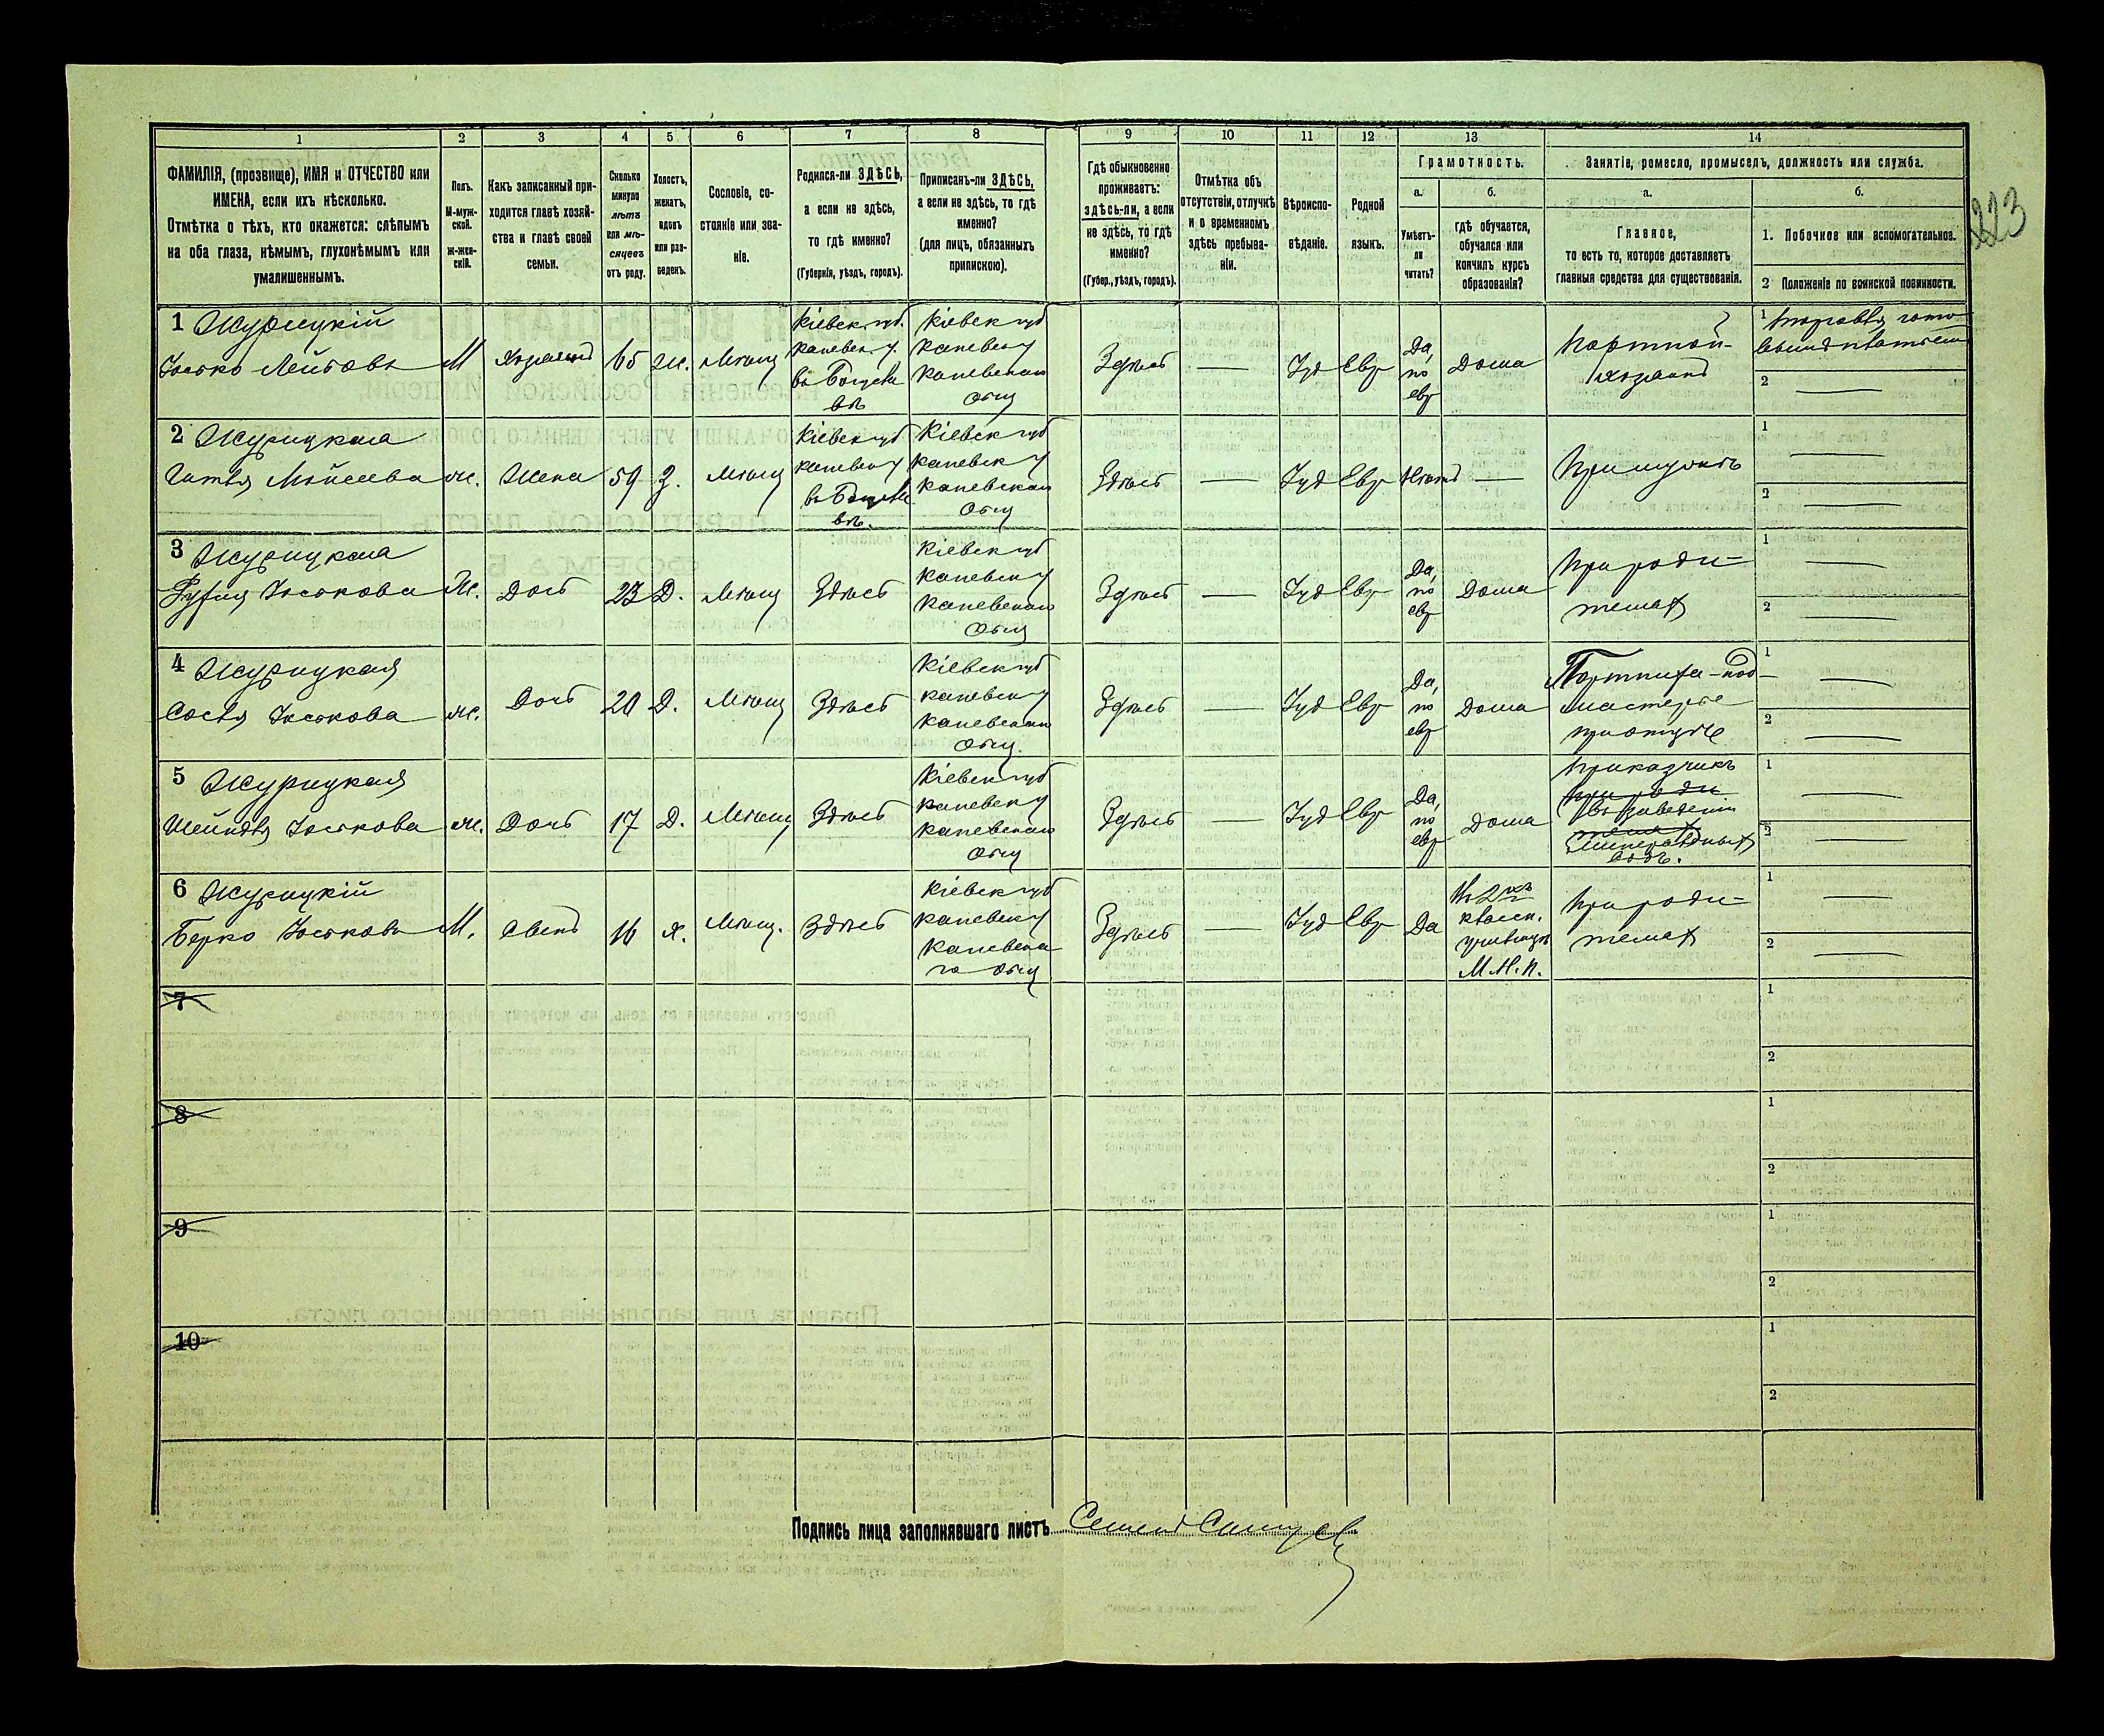 1 2 3 4 5 6 7 8 9 10 11 12 13 14
ФАМИЛІЯ, (прозвище), ИМЯ и ОТЧЕСТВО или
ИМЕНА, если ихъ нѣсколько.
Отмѣтка о тѣхъ, кто окажется: слѣпымъ
на оба глаза, нѣмымъ, глухонѣмымъ или
умалишеннымъ.
Полъ.
М-муж-
ской.
Ж-жен-
скій.
Какъ записанный при-
ходится главѣ хозяй-
ства и главѣ своей
семьи.
Сколько
минуло
лѣтъ
или мѣ-
сяцевъ
отъ роду.
Холостъ,
женатъ,
вдовъ
или раз-
веденъ.
Сословіе, со-
стояніе или зва-
ніе.
Родился-ли ЗДѢСЬ,
а если не здѣсь,
то гдѣ именно?
(Губернія, уѣздъ, городъ).
Приписанъ-ли ЗДѢСЬ,
а если не здѣсь, то гдѣ
именно?
(для лицъ, обязанныхъ
припискою).
Гдѣ обыкновенно
проживаетъ:
здѣсь-ли, а если
не здѣсь, то гдѣ
именно?
(Губер., уѣздъ, городъ).
Отмѣтка объ
отсутствіи, отлучкѣ
и о временномъ
здѣсь пребыва-
ніи.
Вѣроиспо-
вѣданіе.
Родной
языкъ.
Грамотность.
а.
Умѣетъ-
ли
читать?
б.
гдѣ обучается,
обучался или
кончилъ курсъ
образованія?
Занятіе, ремесло, промыселъ, должность или служба.
а.
Главное,
то есть то, которое доставляетъ
главныя средства для существованія.
б.
1. Побочное или вспомогательное.
2 Положеніе по воинской повинности.
223
1 Журицкій
Іосько Лейбовъ
М
Хозяинъ
65
Ж.
Мѣщ
Кіевск. губ.
Каневск. у.
Кіевск губ
Каневск у
Каневскаго
общ
Здѣсь
—
Іуд
Евр
Да,
по
евр
Дома
Портной-
хозяинъ
1 Торговля гото-
вымъ платьемъ
2 —
2 Журицкая
Моисеева
ж.
Жена
59
З.
Мѣщ
Кіевск губ
Каневск у
Кіевск губ
Каневск у
Каневскаго
общ
Здѣсь
—
Іуд
Евр
Нѣтъ
—
При мужѣ
1 —
2 —
3 Журицкая
Іоськова
Ж.
Дочь
23
Д.
Мѣщ
Здѣсь
Кіевск губ
Каневск у
Каневскаго
общ
Здѣсь
—
Іуд
Евр
Да,
по
евр
Дома
При роди-
теляхъ
1 —
2 —
4 Журицкая
Іоськова
ж.
Дочь
20
Д.
Мѣщ
Здѣсь
Кіевск губ
Каневск у
Каневскаго
общ.
Здѣсь
—
Іуд
Евр
Да,
по
евр
Дома
Портниха-под-
мастерье
при отцѣ
1 —
2 —
5 Журицкая
Шейндля Іоськова
ж.
Дочь
17
Д.
Мѣщ
Здѣсь
Кіевск губ
Каневск у
Каневскаго
общ
Здѣсь
—
Іуд
Евр
Да,
по
евр
Дома
Приказчикъ
при роди
въ заведеніи
теляхъ
минеральныхъ
водъ.
1 —
2 —
6 Журицкій
Берко Іоськовъ
М.
Сынъ
16
Х.
Мѣщ.
Здѣсь
Кіевск губ
Каневск у
Каневска
го общ
Здѣсь
—
Іуд
Евр
Да
классн.
училищѣ
М.Н.П.
При роди-
теляхъ
1 —
2 —
7
1
2
8
1
2
9
1
2
10
1
2
Подпись лица заполнявшаго листъ